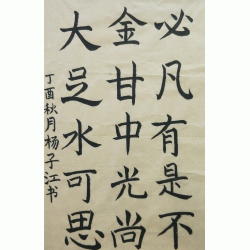 必凡有是不
金甘中光尚
大足水可思
丁酉秋月杨子江书